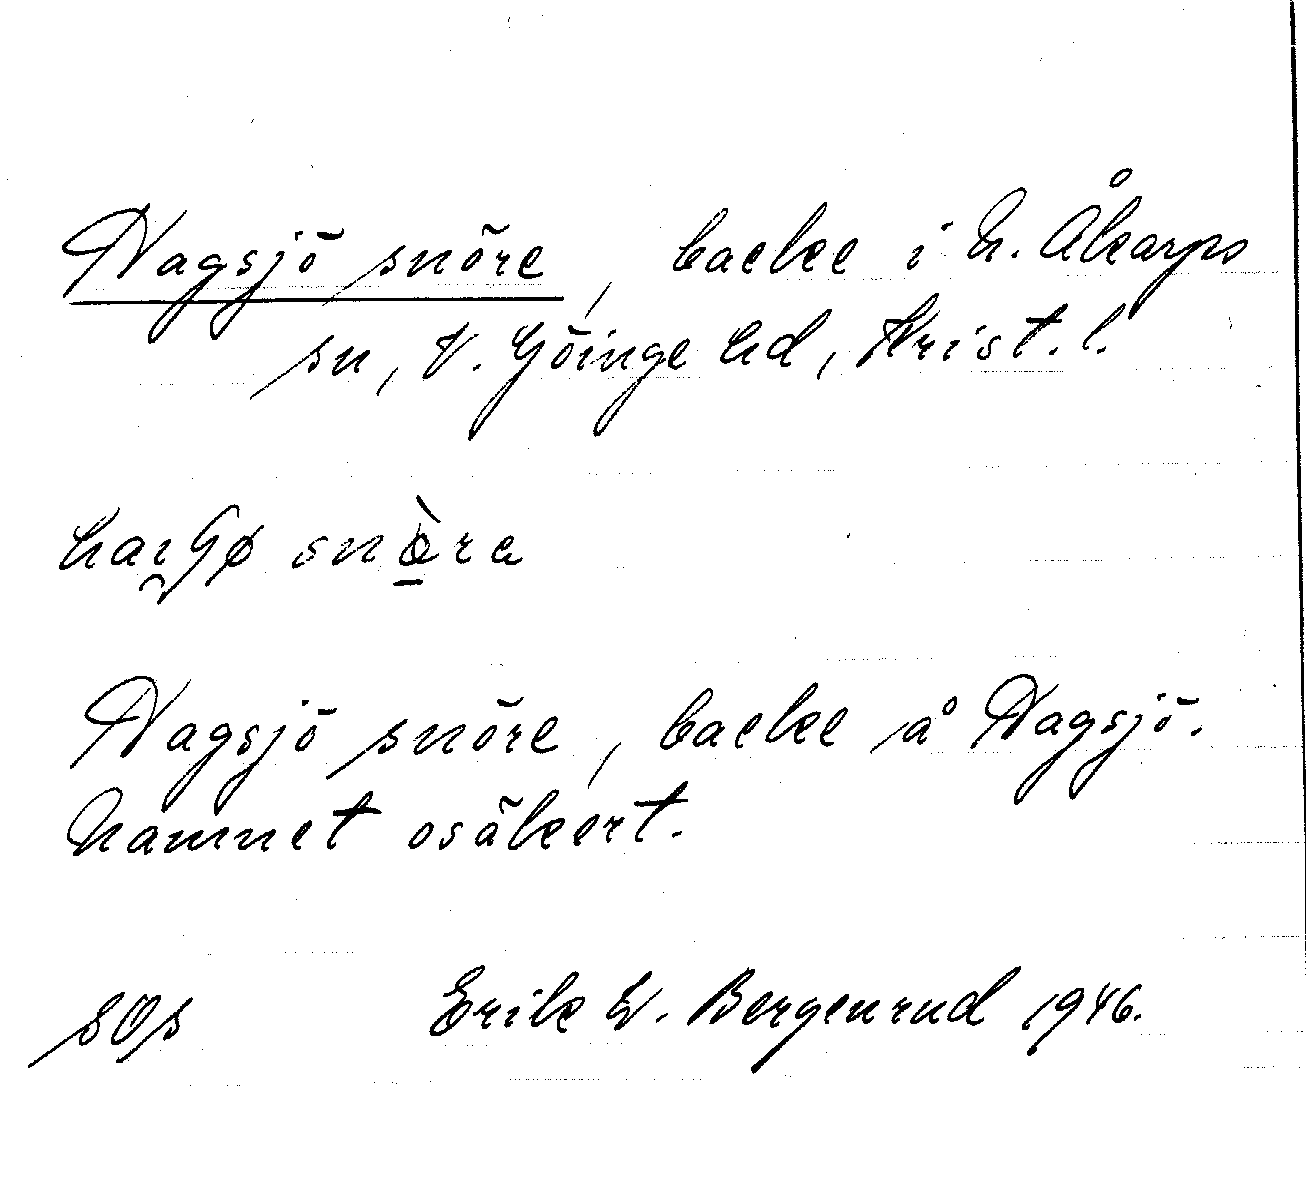 Hagsjö snöre, backe i N. Åkarps
sn, V. Göinge hd, Krist. l.
hai̯ʃø snø̱̀ra
Hagsjö snöre, backe å Hagsjö.
Namnet osäkert.
sOs Erik W. Bergenrud 1946.